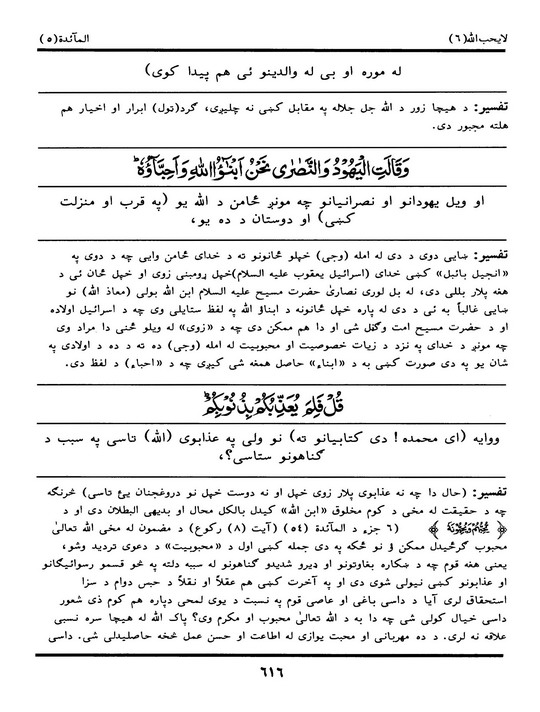 لایحب الله(۶) المآئدة(۵)
له موره او بی له والدینو ئی هم پیدا کوی)
تفسیر: د هیچا زور د الله جل جلاله په مقابل کښی نه چلیږی، ګرد(تول) ابرار او اخیار هم
هلته مجبور دی.
وَقَالَتِ الْيَهُوْدُ وَالنَّصٰرٰى نَحْنُ اَبْنٰٓؤُا اللّٰهِ وَاَحِبَّآؤُهٗ ؕ
او ویل یهودانو او نصرانیانو چه مونږ ځامن د الله یو (په قرب او منزلت
کښی) او دوستان د ده یو،
تفسیر: ښایی دوی د دی له امله (وجی) خپلو ځانونو ته د خدای ځامن وایی چه د دوی په
«انجیل بائبل» کښی خدای (اسرائیل یعقوب علیه السلام)خپل ړومبنی زوی او خپل ځان ئی د
هغه پلار بللی دی، له بل لوری نصاریٰ حضرت مسیح علیه السلام ابن الله بولی (معاذ الله) نو
ښایی غالباً به ئی د دی له پاره خپل ځانونه د ابناؤ الله په لفظ ستایلی وی چه د اسرائیل اولاده
او د حضرت مسیح امت وګڼل شی او دا هم ممکن دی چه د «زوی» له ویلو ځنی دا مراد وی
چه مونږ د خدای په نزد د زیات خصوصیت او محبوبیت له امله (وجی) ده ته د ده د اولادی په
شان یو په دی صورت کښی به د «ابناء» حاصل همغه شی کیږی چه د «احباء) د لفظ دی.
قُلْ فَلِمَ يُعَذِّبُكُمْ بِذُنُوْبِكُمْ ؕ
ووایه (ای محمده! دی کتابیانو ته) نو ولی په عذابوی (الله) تاسی په سبب د
ګناهونو ستاسی؟،
تفسیر: (حال دا چه نه عذابوی پلار زوی خپل او نه دوست خپل نو دروغجنان یئ تاسی) څرنګه
چه د حقیقت له مخی د کوم مخلوق «ابن الله» کیدل بالکل محال او بدیهی البطلان دی او د
﴿يُحِبُّهُمْ وَيُحِبُّوْنَهٗ﴾ (۶ جزء د المآئدة (۵۴) آیت (۸) رکوع) د مضمون له مخی الله تعالیٰ
محبوب ګرځیدل ممکن ؤ نو ځکه په دی جمله کښی اول د «محبوبیت» د دعوی تردید وشو،
یعنی هغه قوم چه د ښکاره بغاوتونو او ډیرو شدیدو ګناهونو له سببه دلته په څو قسمو رسوائیګانو
او عذابونو کښی نیولی شوی دی او په آخرت کښی هم عقلاً او نقلاً د حبس دوام د سزا
استحقاق لری آیا د داسی باغی او عاصی قوم په نسبت د یوی لمحی دپاره هم کوم ذی شعور
داسی خیال کولی شی چه دا به د الله تعالیٰ محبوب او مکرم وی؟ پاک الله له هیچا سره نسبی
علاقه نه لری. د ده مهربانی او محبت یوازی له اطاعت او حسن عمل څخه حاصلیدلی شی. داسی
۶۱۶